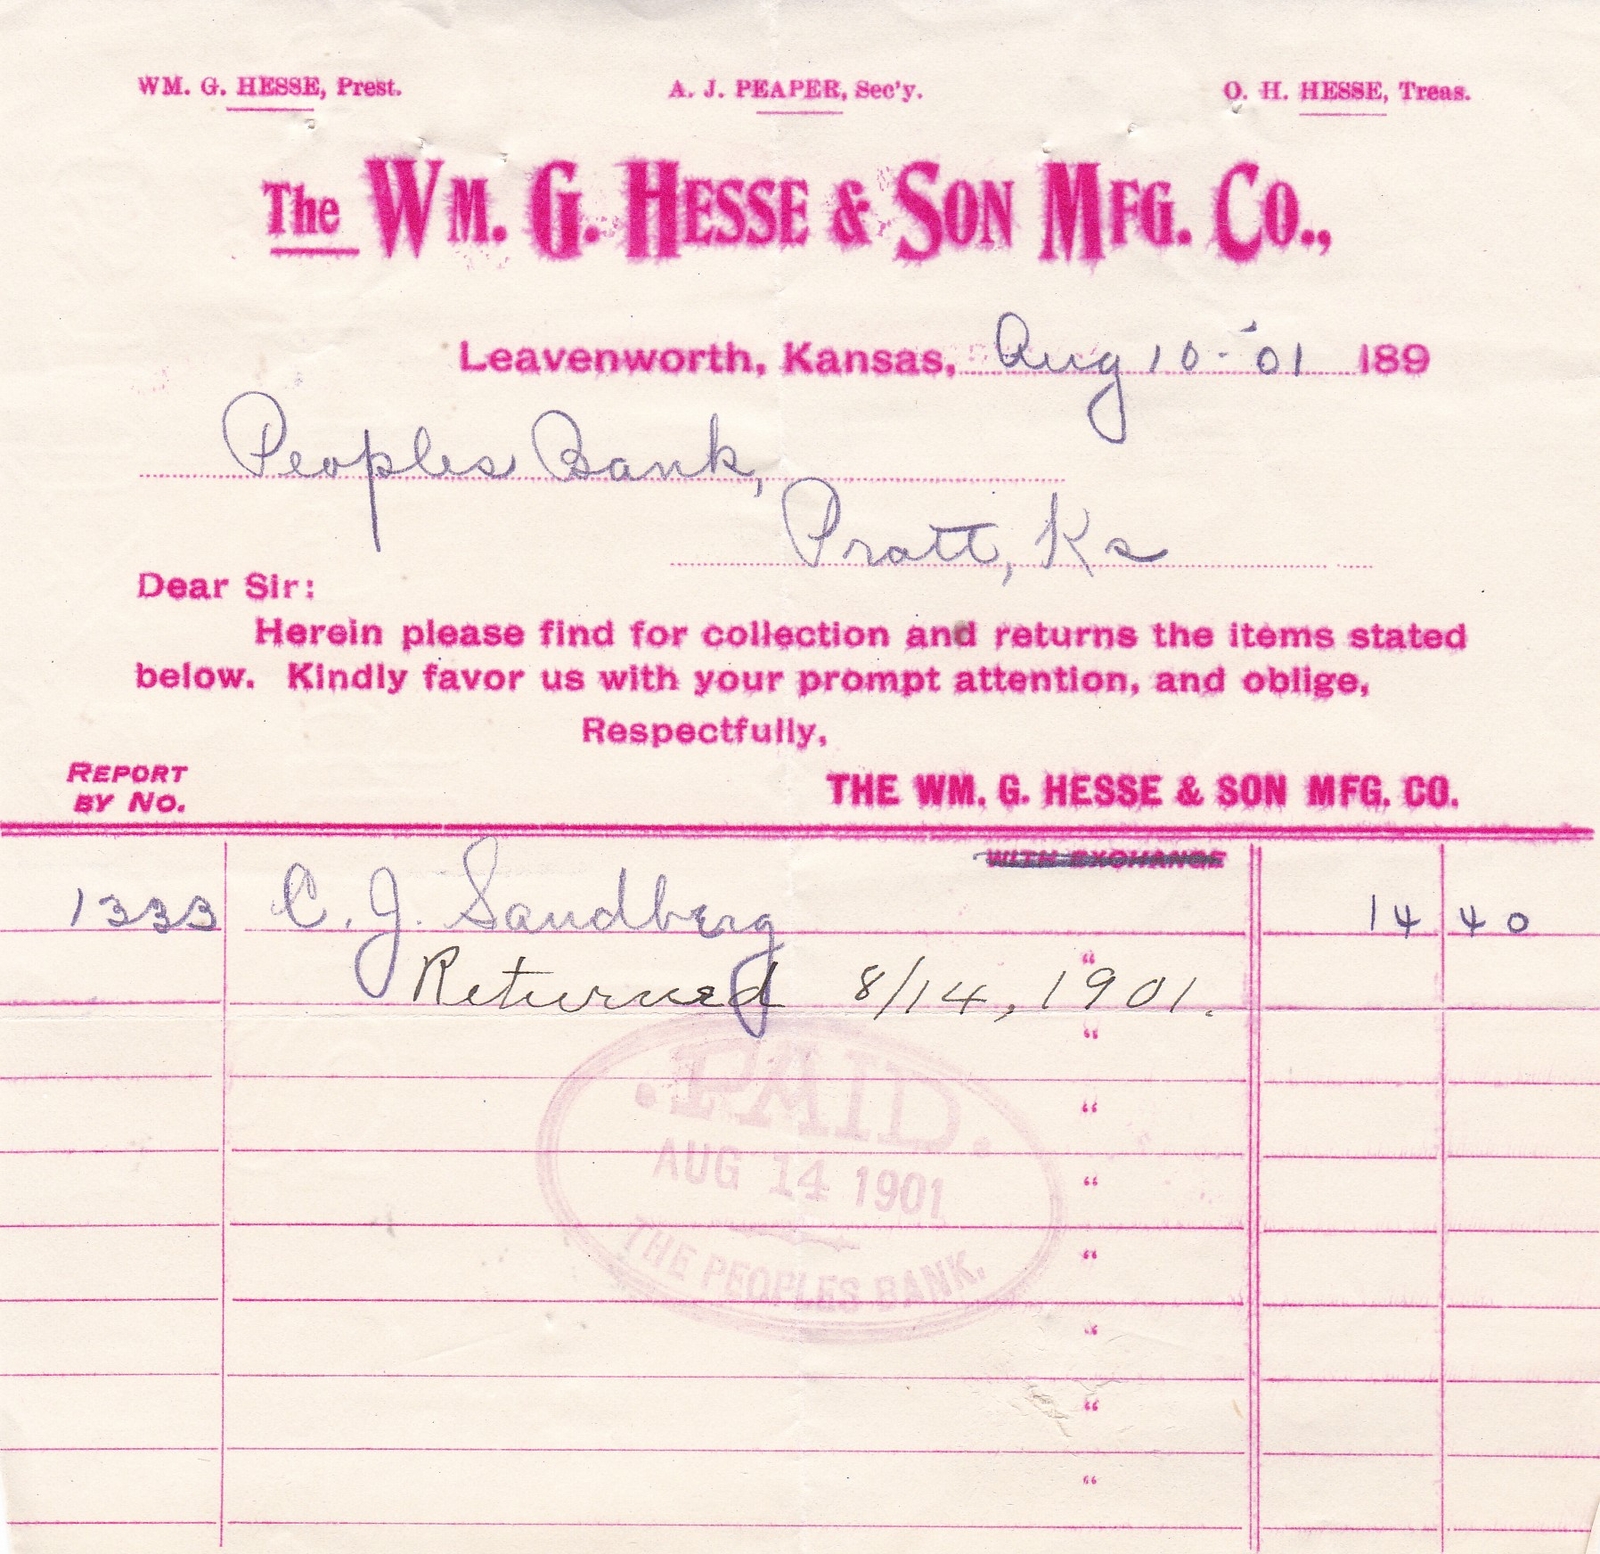 WM. G. HESSE, Prest. A. J. PEAPER, Sec'y. O. H. HESSE, Treas.
The WM. G. HESSE & SON MFG. CO.,
Leavenworth, Kansas, Aug 10 - '01 189
Peoples Bank,
Pratt, Ks
Dear Sir:
Herein please find for collection and returns the items stated
below. Kindly favor us with your prompt attention, and oblige,
Respectfully,
REPORT
BY NO.
THE WM. G. HESSE & SON MFG. CO.
WITH EXCHANGE
1333 C. J. Sandberg 14 40
“
Returned 8/14, 1901.
“
.PAID.
“
AUG 14 1901
“
“
THE PEOPLES BANK.
“
“
“